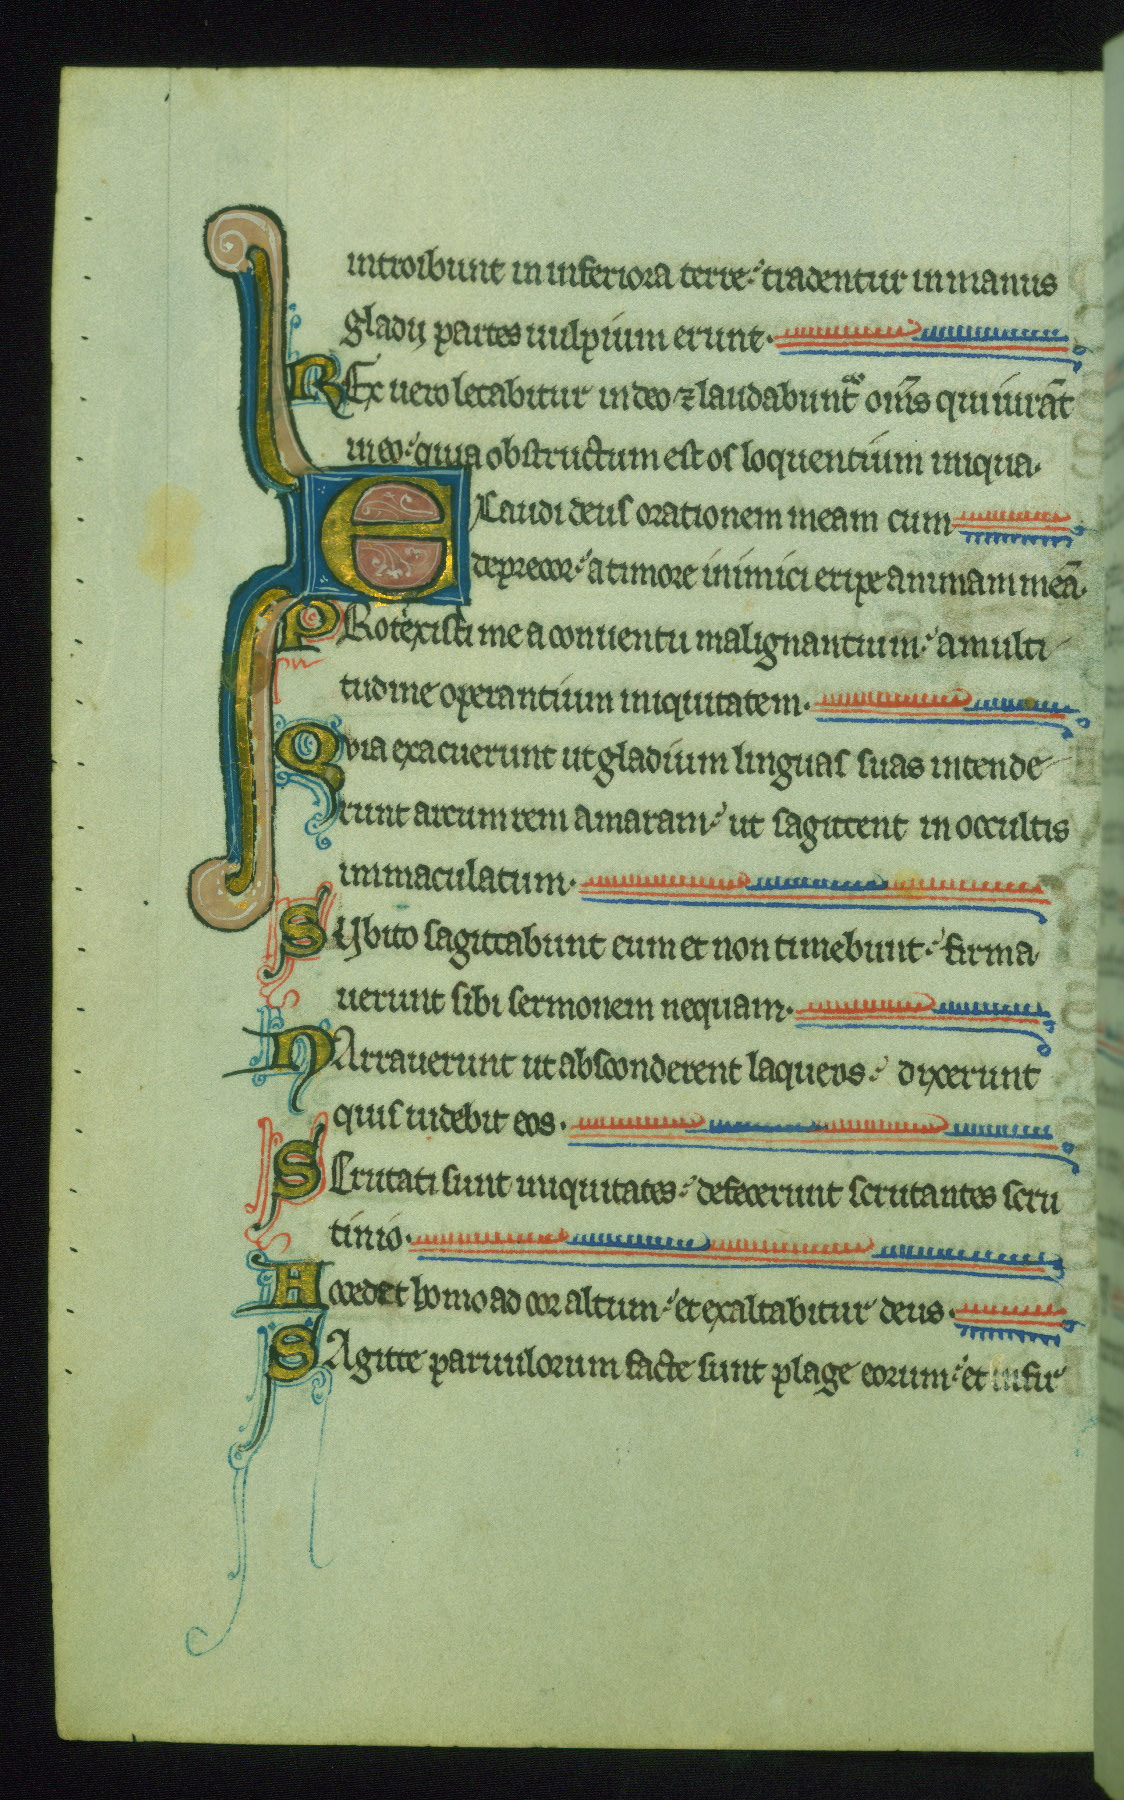 introibunt in inferiora terre: tradentur in manus
gladij partes uulpium erunt.
REx uero letabitur in deo ⁊ laudabunt᷑ om̄s qui iurāt
in eo: quia obstructum est os loquentium iniqua.
Exaudi deus orationem meam cum
deprecor: a timore inimici eripe animam meā.
PRotexisti me a conuentu malignantium: a multi
tudine operantium iniquitatem.
Qvia exacuerunt ut gladium linguas suas intende
runt arcum rem amaram: ut sagittent in occultis
immaculatum.
SVbito sagittabunt eum et non timebunt: firma
uerunt sibi sermonem nequam.
NArrauerunt ut absconderent laqueos: dixerunt
quis uidebit eos.
SCrutati sunt iniquitates: defecerunt scrutantes scru
tinio.
Accedet homo ad cor altum: et exaltabitur deus.
SAgitte paruulorum facte sunt plage eorum: et infir